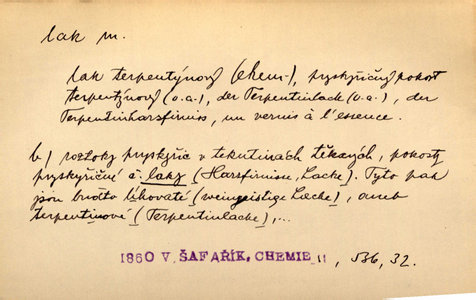 lak m.
lak terpentýnový (chem.), pryskyřičný pokost
terpetýnový (v.a.), der Terpentinlack (v.a.), der
Terpentinharzfirniss, un vernis à l'essence.
b) roztoky pryskyřic v tekutinách těkavých, pokosty
pryskyřičné či laky (Harzfirnisse, Lacke). Tyto pak
jsou buďto líhovaté (weingeistige Lacke), aneb
terpentinové (Terpentinlacke),...
1860 V. ŠAFAŘÍK, CHEMIE II, 536, 32.